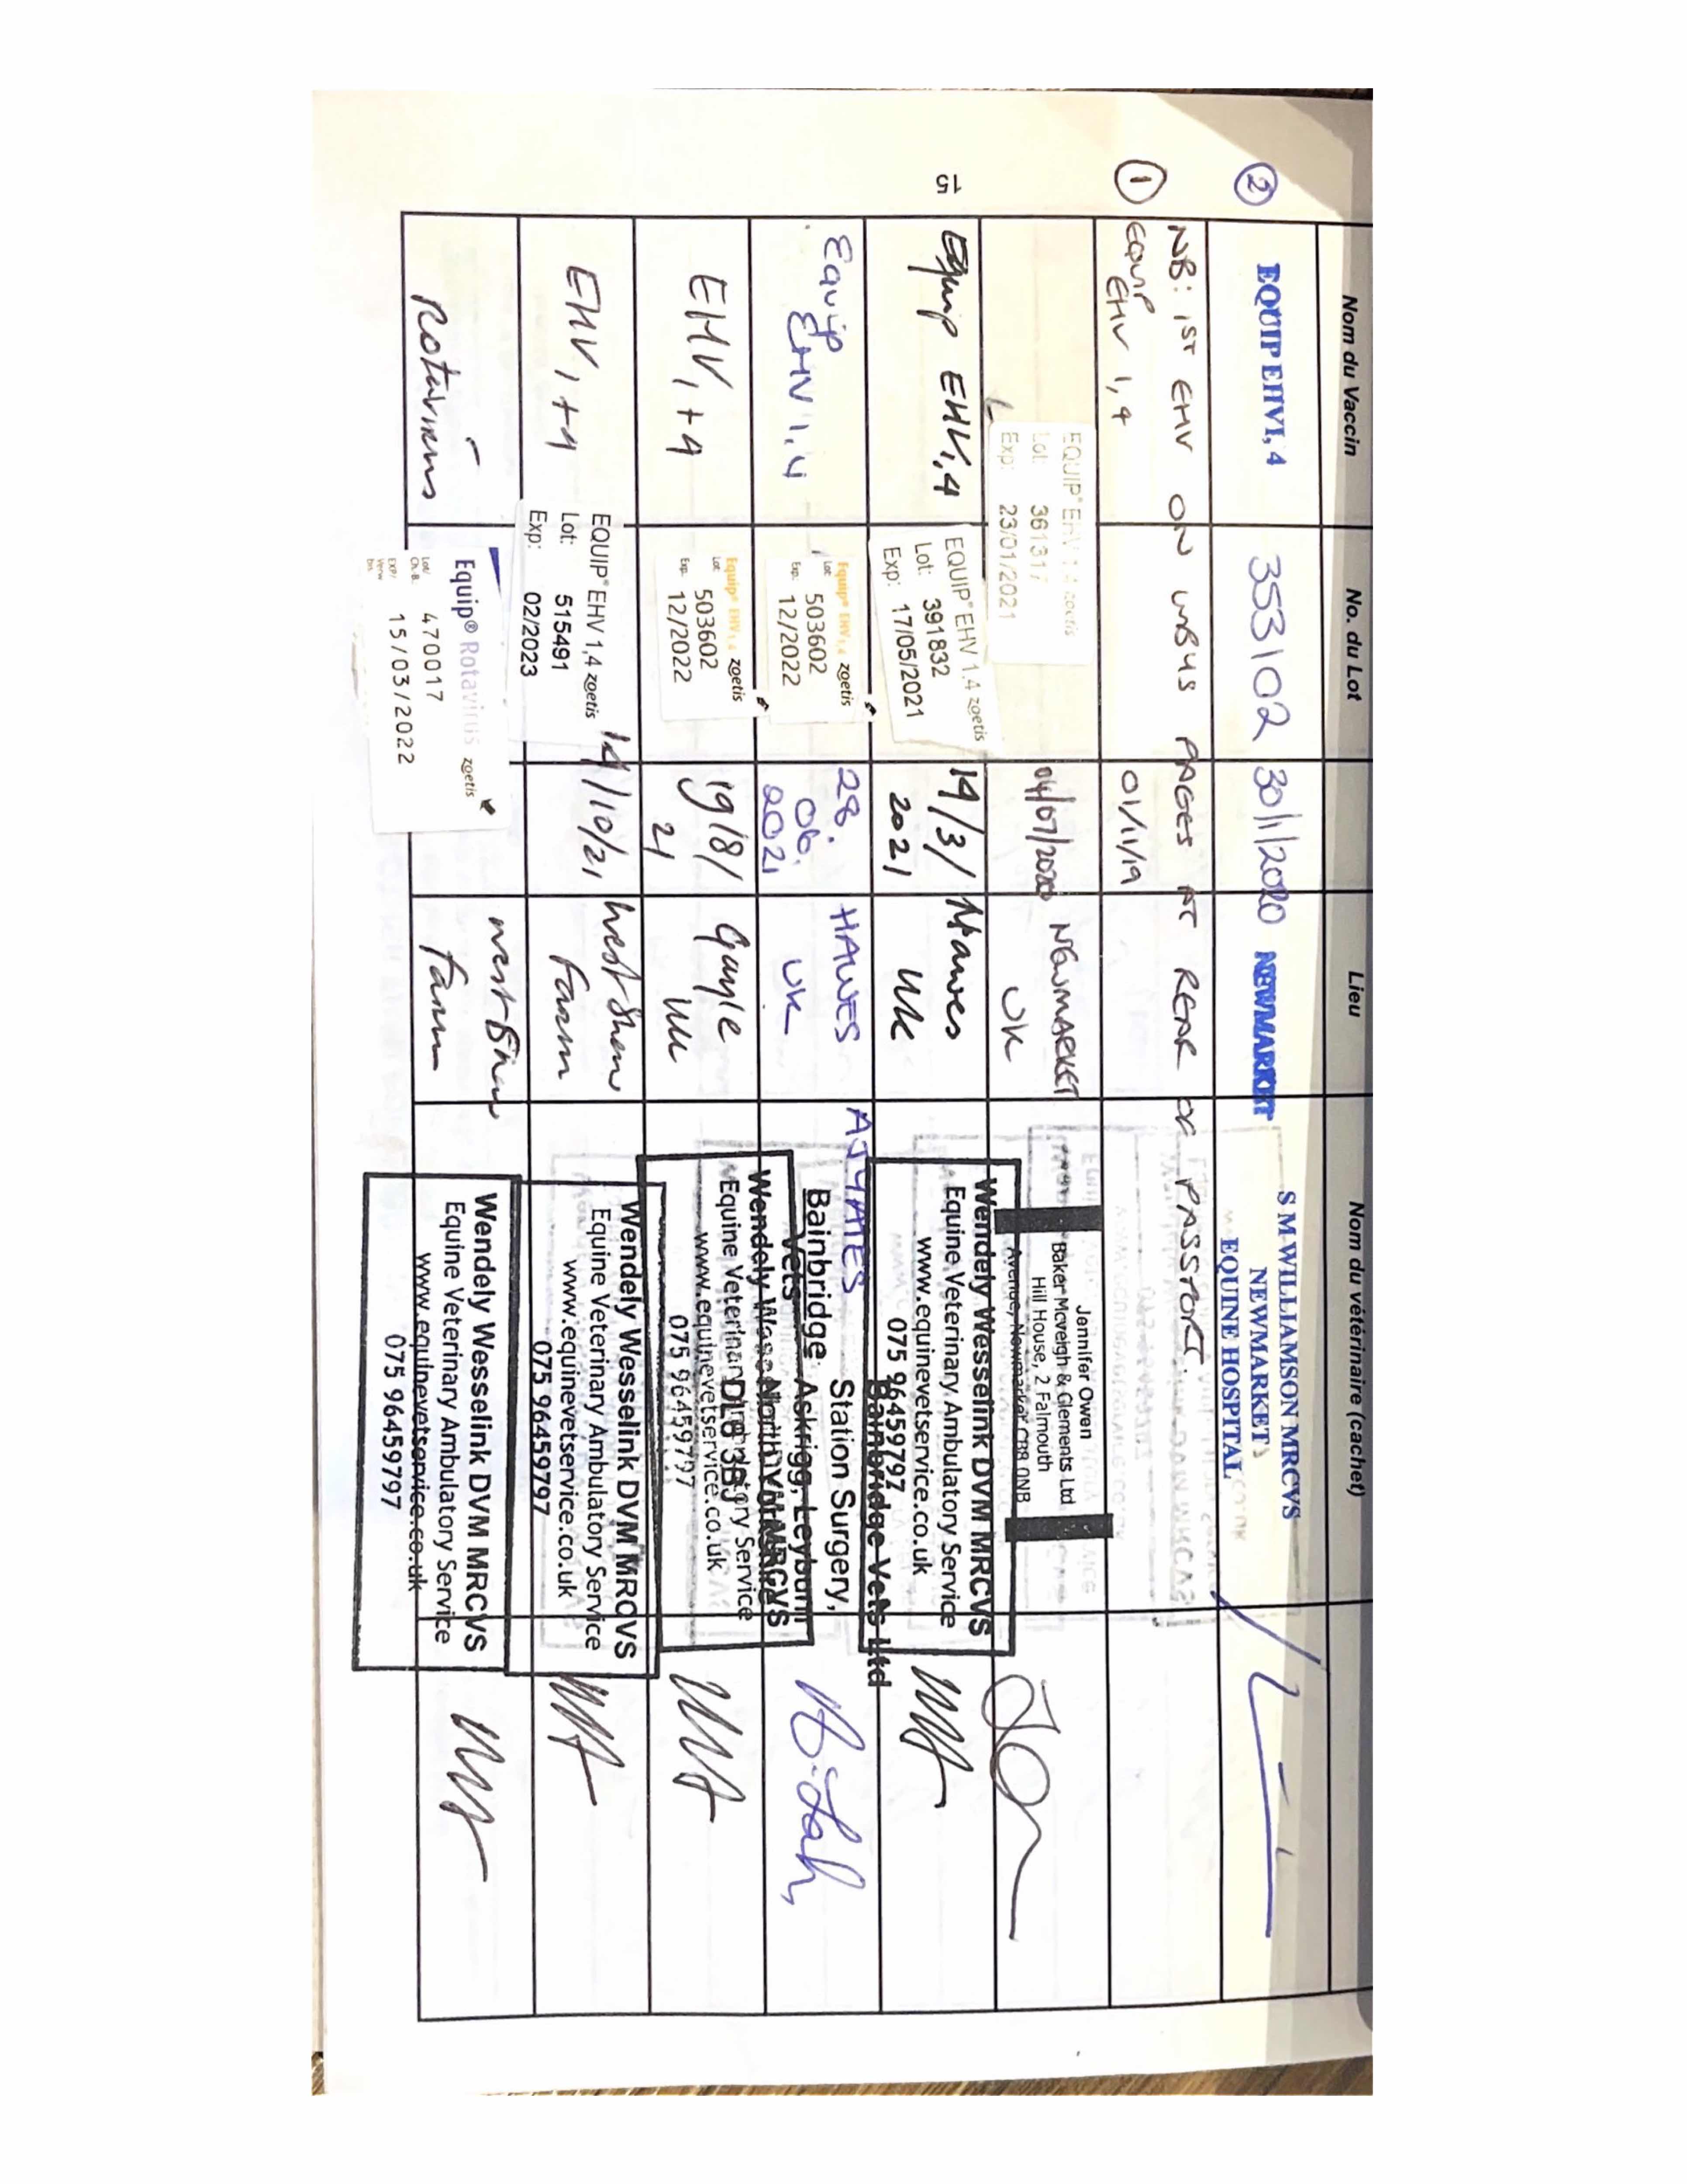 Nom du Vaccin
No. du Lot
Lieu
Nom du vétérinaire (cachet)
② EQUIP EHV1, 4
353102
30/1/2020
NEWMARKET
S M WILLIAMSON MRCVS
NEWMARKET
EQUINE HOSPITAL
NB: 1ST EHV ON WBUS PAGES AT REAR OF PASSPORT.
① EQUIP
EHV 1, 4
01/11/19
EQUIP® EHV 1,4 zoetis
Lot: 361317
Exp: 23/01/2021
04/07/2020
NEWMARKET
UK
Jennifer Owen
Baker Mcveigh & Clements Ltd
Hill House, 2 Falmouth
Avenue, Newmarket CB8 0NB
15
Equip EHV1,4
EQUIP® EHV 1,4 zoetis
Lot: 391832
Exp: 17/05/2021
14/3/
2021
Hawes
UK
Wendely Wesselink DVM MRCVS
Equine Veterinary Ambulatory Service
www.equinevetservice.co.uk
075 96459797
Equip
EHV 1,4
Equip® EHV 1,4 zoetis
Lot: 503602
Exp. 12/2022
28.
06.
2021
HAWES
UK
Bainbridge Vets Ltd
Station Surgery,
Bainbridge
Askrigg, Leyburn
North Yorkshire
DL8 3BJ
Vets
EHV, 1+4
Equip® EHV 1,4 zoetis
Lot: 503602
Exp. 12/2022
19/8/
21
Gayle
UK
Equine Veterinary Ambulatory Service
www.equinevetservice.co.uk
075 96459797
EHV, 1+4
EQUIP® EHV 1,4 zoetis
Lot: 515491
Exp: 02/2023
14/10/21
West Shaw
Farm
Wendely Wesselink DVM MRCVS
Equine Veterinary Ambulatory Service
www.equinevetservice.co.uk
075 96459797
Rotavirus
Equip® Rotavirus zoetis
Lot/
Ch.B. 470017
EXP/
Verw
bis 15/03/2022
West Shaw
Farm
Wendely Wesselink DVM MRCVS
Equine Veterinary Ambulatory Service
www.equinevetservice.co.uk
075 96459797